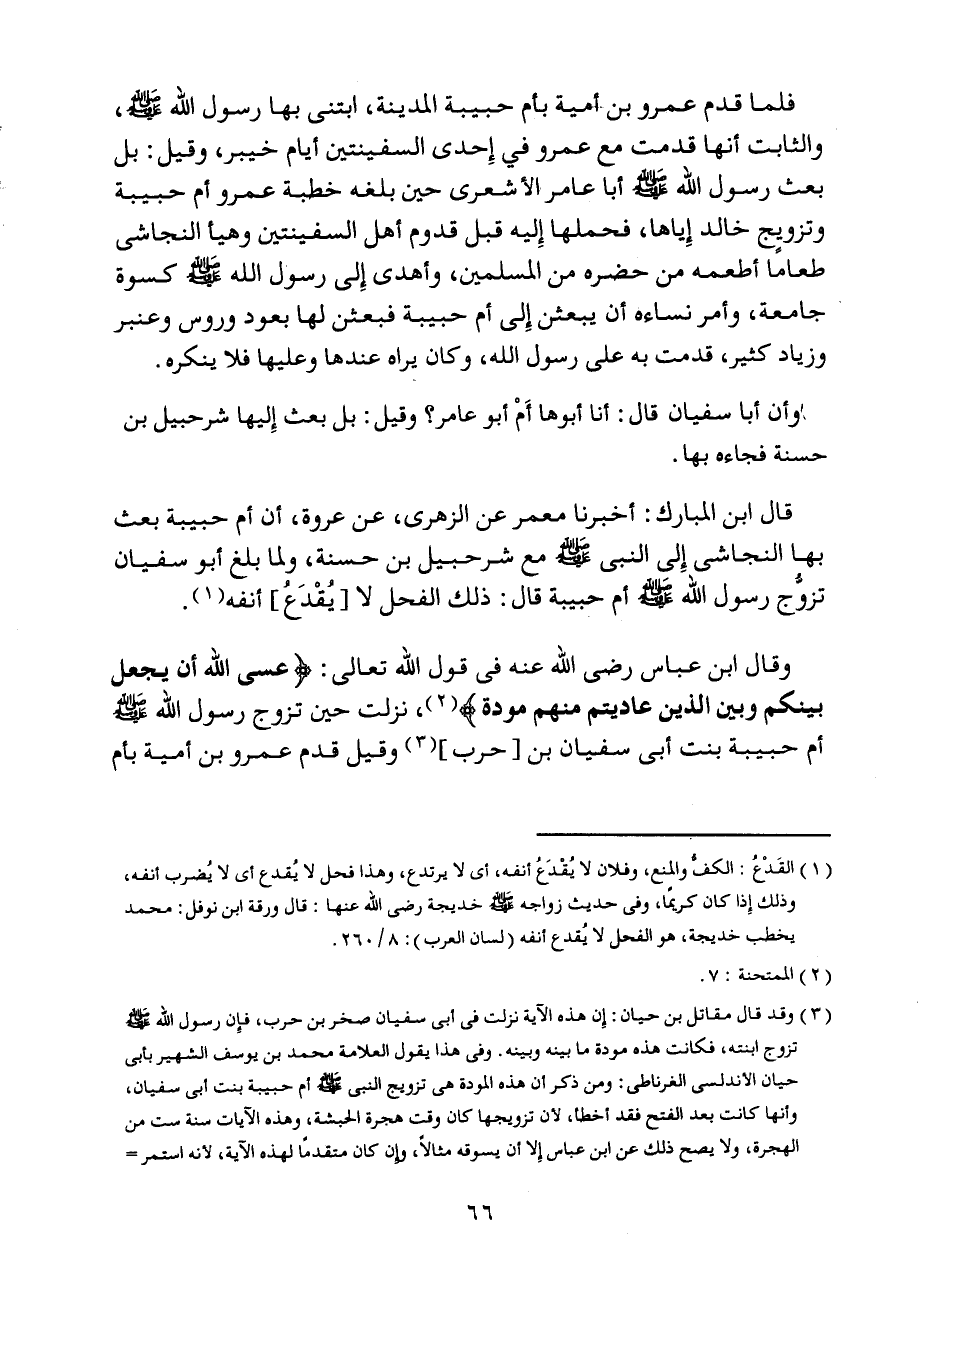 فلما قدم عمرو بن أمية بأم حبيبة المدينة، ابتنى بها رسول الله ﷺ،
والثابت أنها قدمت مع عمرو في إحدى السفينتين أيام خيبر، وقيل: بل
بعث رسول الله ﷺ أبا عامر الأشعرى حين بلغه خطبة عمرو أم حبيبة
وتزويج خالد إياها، فحملها إليه قبل قدوم أهل السفينتين وهيأ النجاشى
طعامًا أطعمه من حضره من المسلمين، وأهدى إلى رسول الله ﷺ كسوة
جامعة، وأمر نساءه أن يبعثن إلى أم حبيبة فبعثن لها بعود وروس وعنبر
وزياد كثير، قدمت به على رسول الله، وكان يراه عندها وعليها فلا ينكره.
وأن أبا سفيان قال: أنا أبوها أَمْ أبو عامر؟ وقيل: بل بعث إليها شرحبيل بن
حسنة فجاءه بها.
قال ابن المبارك: أخبرنا معمر عن الزهرى، عن عروة، أن أم حبيبة بعث
بها النجاشى إلى النبى ﷺ مع شرحبيل بن حسنة، ولما بلغ أبو سفيان
تزوُّج رسول الله ﷺ أم حبيبة قال: ذلك الفحل لا [يُقْدَعُ] أنفه(١).
وقال ابن عباس رضى الله عنه فى قول الله تعالى: ﴿عسى الله أن يجعل
بينكم وبين الذين عاديتم منهم مودة﴾(٢)، نزلت حين تزوج رسول الله ﷺ
أم حبيبة بنت أبى سفيان بن [حرب](٣) وقيل قدم عمرو بن أمية بأم
(١) القَدْعُ: الكفُّ والمنع، وفلان لا يُقْدَعُ أنفه، أى لا يرتدع، وهذا فحل لا يُقدع أى لا يُضرب أنفه،
وذلك إذا كان كريمًا، وفى حديث زواجه ﷺ خديجة رضى الله عنها: قال ورقة ابن نوفل: محمد
يخطب خديجة، هو الفحل لا يُقدع أنفه (لسان العرب): ٨/ ٢٦٠.
(٢) الممتحنة: ٧.
(٣) وقد قال مقاتل بن حيان: إن هذه الآية نزلت فى أبى سفيان صخر بن حرب، فإن رسول الله ﷺ
تزوج ابنته، فكانت هذه مودة ما بينه وبينه. وفى هذا يقول العلامة محمد بن يوسف الشهير بأبى
حيان الأندلسى الغرناطى: ومن ذكر أن هذه المودة هى تزويج النبى ﷺ أم حبيبة بنت أبى سفيان،
وأنها كانت بعد الفتح فقد أخطأ، لأن تزويجها كان وقت هجرة الحبشة، وهذه الآيات سنة ست من
الهجرة، ولا يصح ذلك عن ابن عباس إلا أن يسوقه مثالاً، وإن كان متقدمًا لهذه الآية، لأنه استمر =
٦٦